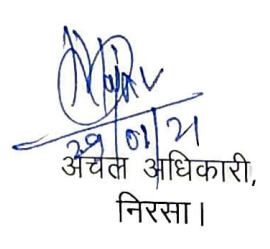 29/01/21
अंचल अधिकारी,
निरसा।